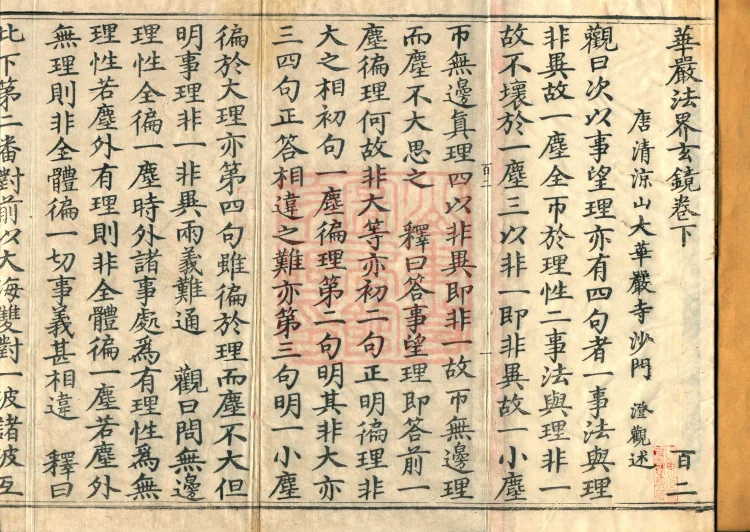 華嚴法界玄鏡卷下 百二
唐清涼山大華嚴寺沙門 澄觀述
觀曰次以事望理亦有四句者一事法與理
非異故一塵全帀於理性二事法與理非一
故不壞於一塵三以非一即非異故一小塵
帀無邊真理四以非異即非一故帀無邊理
而塵不大思之 釋曰荅事望理即荅前一
塵徧理何故非大等亦初二句正明徧理非
大之相初句一塵徧理第二句明其非大亦
三四句正荅相違之難亦第三句明一小塵
徧於大理亦第四句雖徧於理而塵不大但
明事理非一非異兩義難通 觀曰問無邊
理性全徧一塵時外諸事處為有理性為無
理性若塵外有理則非全體徧一塵若塵外
無理則非全體徧一切事義甚相違 釋曰
此下第二番對前以大海雙對一波諸波互
百二
一